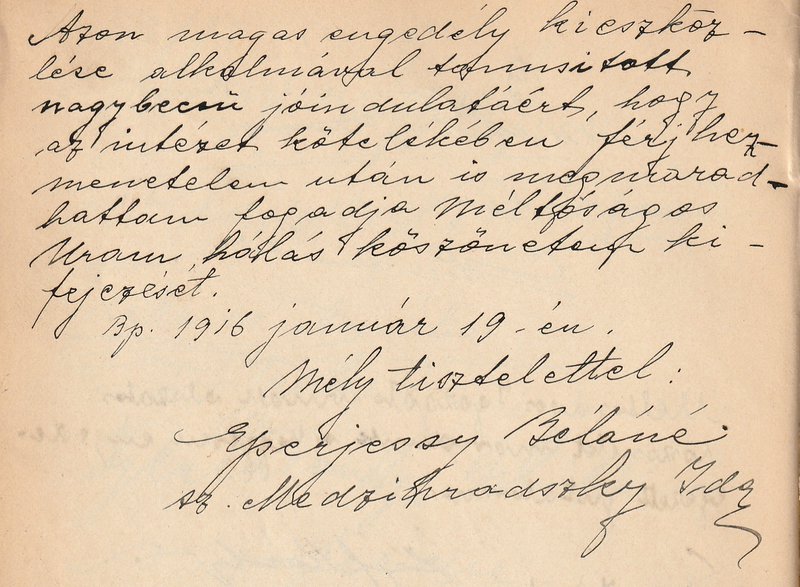 Azon magas engedély kieszköz-
lése alkalmával tanusitott
nagybecsü jóindulatáért, hogy
az intézet kötelékében férjhez-
menetelem után is megmarad-
hattam fogadja Méltóságos
Uram hálás köszönetem ki-
fejezését.
Bp. 1916 január 19-én.
Mély tisztelettel:
Eperjessy Béláné
sz. Medzihradszky Ida